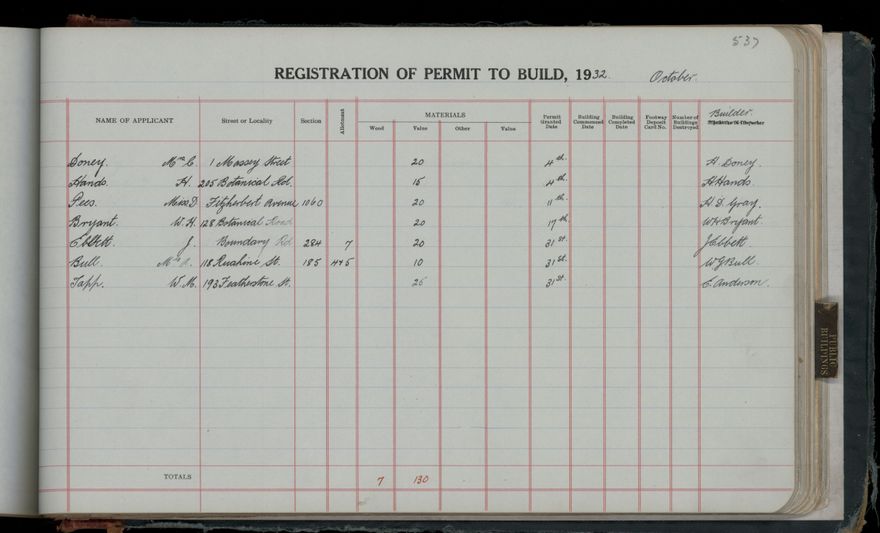 537
REGISTRATION OF PERMIT TO BUILD, 1932. October.
NAME OF APPLICANT Street or Locality Section Allotment MATERIALS Wood Value Other Value Permit Granted Date Building Commenced Date Building Completed Date Footway Deposit Card No. Number of Buildings Destroyed Builder
Doney. Mrs C. 1 Massey Street 20 4th. H. Doney.
Hands. H. 205 Botanical Rd. 15 4th. H Hands.
Pees. Miss D Fitzherbert Avenue 1060 20 11th. H. D. Gray.
Bryant. W. H. 128 Botanical Road 20 17th W H Bryant.
Ebbett. J. Boundary Rd 284 7 20 31st. J Ebbett.
Bull. Mrs A. 118 Ruahine St. 185 445 10 31st. W G Bull.
Tapp. W. M. 193 Featherstone St. 25 31st. C. Anderson.
TOTALS 7 130
PUBLIC BUILDINGS